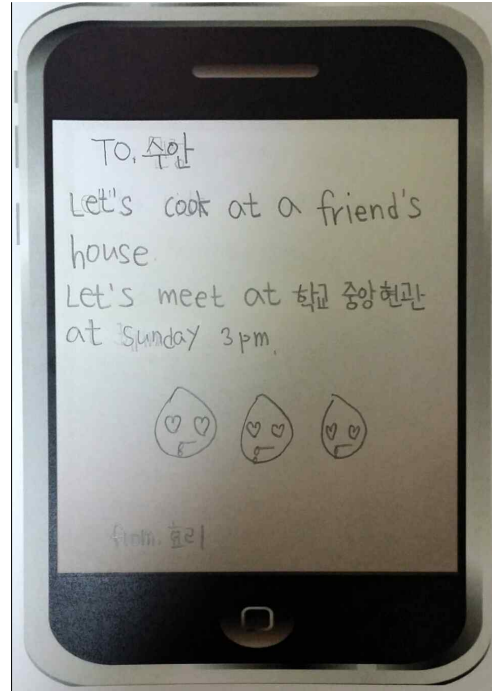 TO. 수안
Let's cook at a friend's
house.
Let's meet at 학교 중앙현관
at Sunday 3pm.
from. 효리